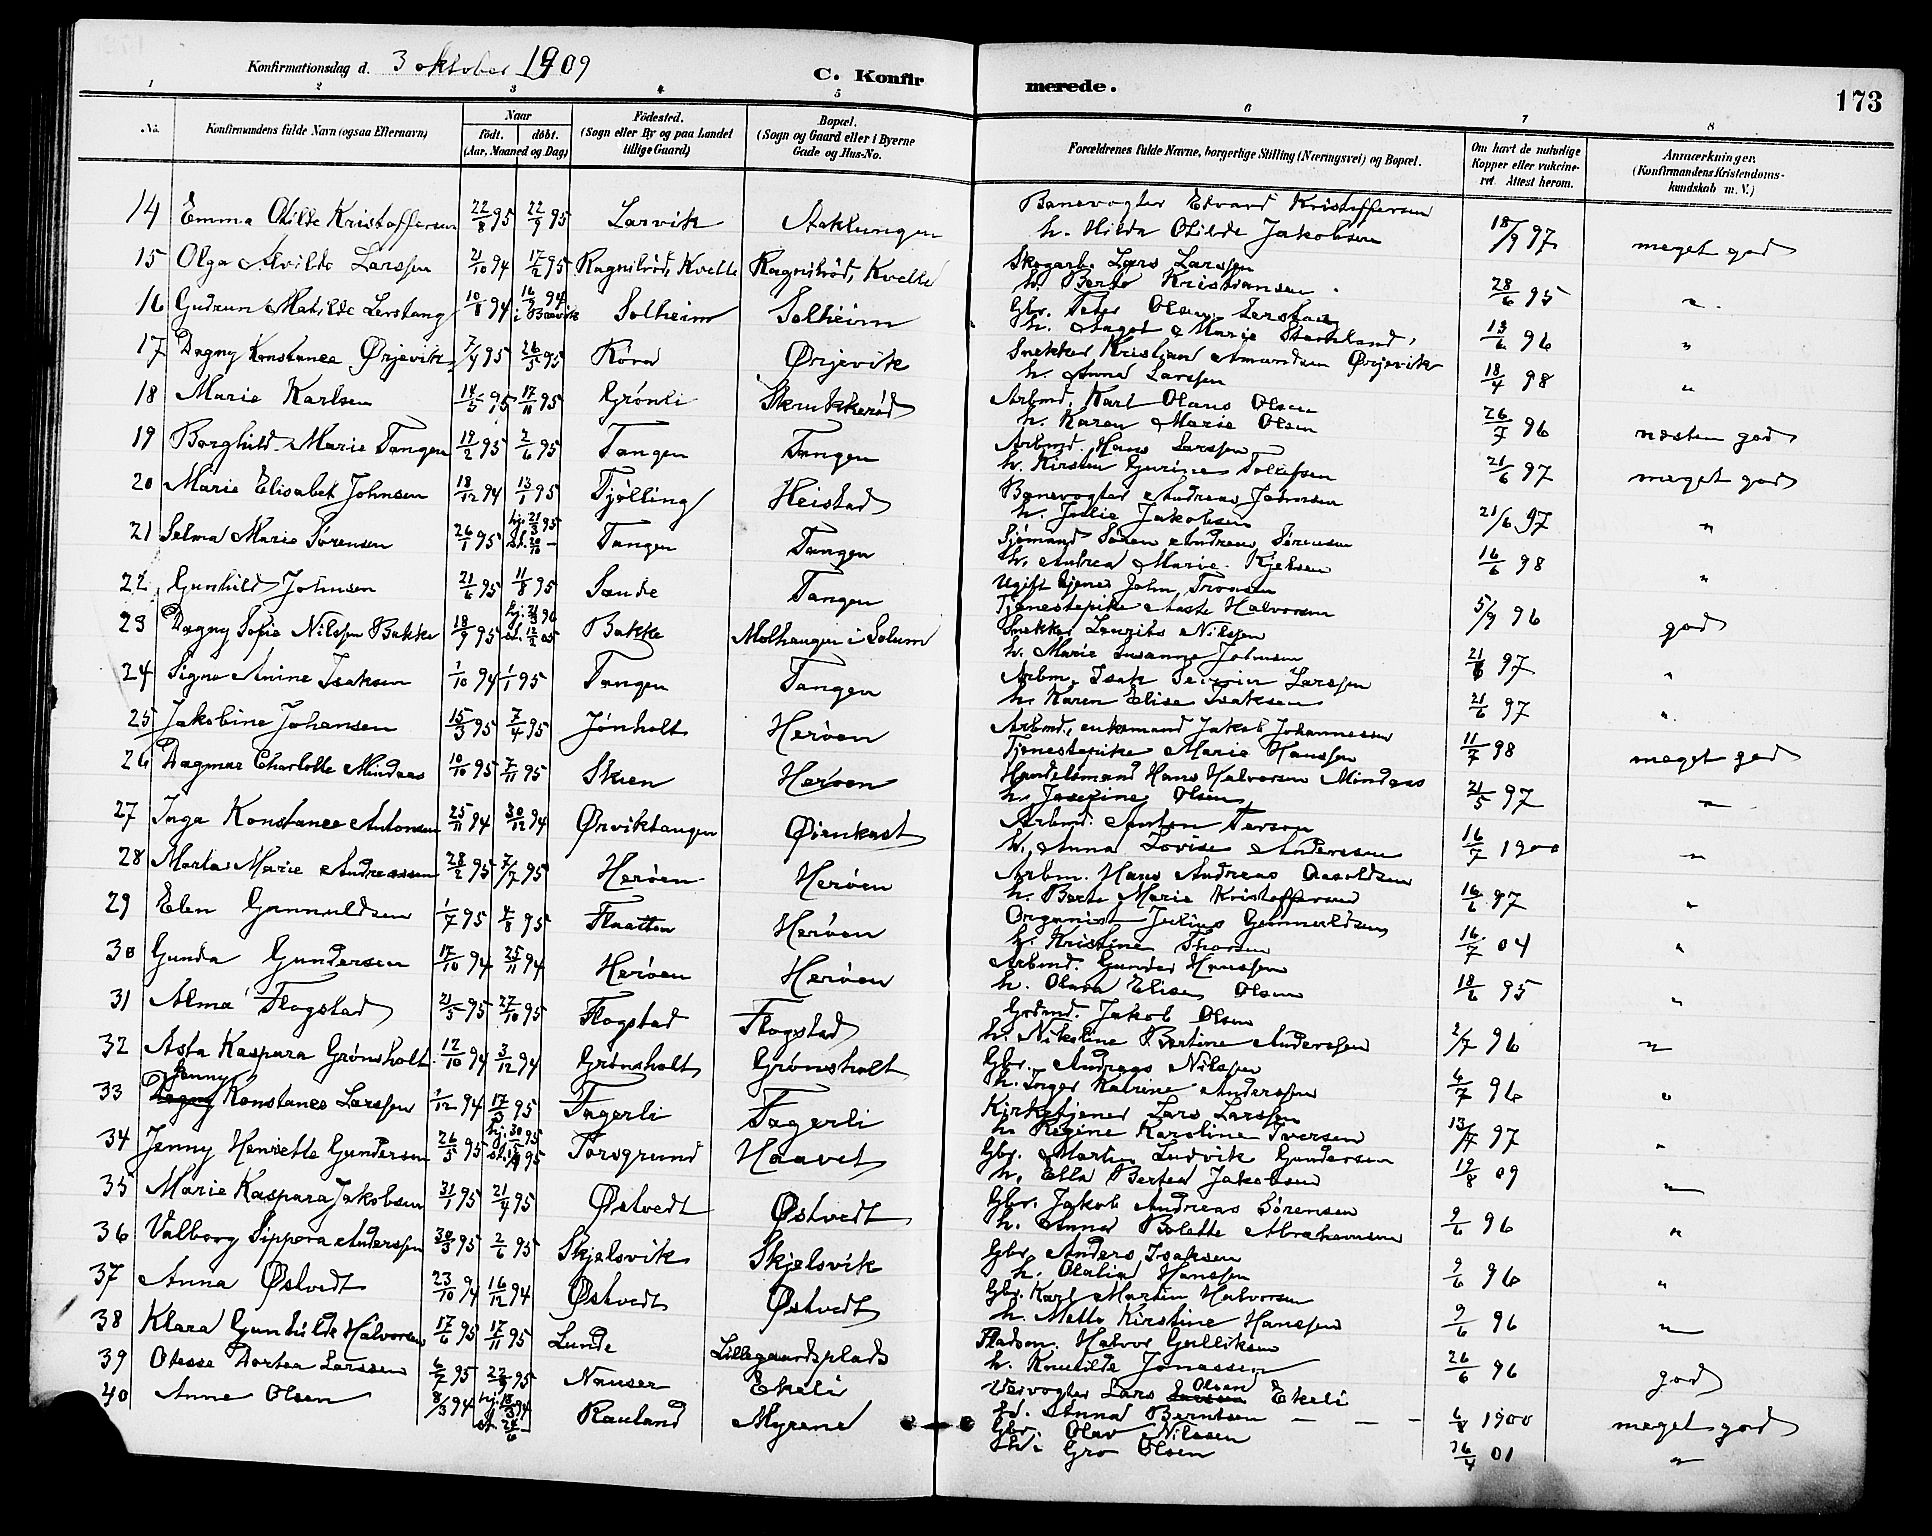 Konfirmationsdag d. 3 oktober 1909
C. Konfirmerede.
173
1 2 3 4 5 6 7 8
No. Konfirmandens fulde Navn (ogsaa Efternavn) Naar født. døbt. (Aar, Maaned og Dag) Fødested. (Sogn eller By og paa Landet tillige Gaard) Bopæl. (Sogn og Gaard eller i Byerne Gade og Hus-No. Forældrenes fulde Navne, borgerlige Stilling (Næringsvei) og Bopæl. Om havt de naturlige Kopper eller vakcineret. Attest herom. Anmærkninger. (Konfirmandens Kristendomskundskab m. V.)
14 Emma Otilde Kristoffersen 22/8 95 22/9 95 Larvik Aaklungen Banevogter Edvard Kristoffersen
h. Hilda Otilde Jakobsen 18/9 97 meget god
15 Olga Alvilde Larssen 21/10 94 17/2 95 Ragnilrød, Kvelle Ragnilrød, Kvelle Skogarb. Lars Larssen
h. Berte Kristiansen 28/6 95 "
16 Gudrun Matilde Lerstang 10/8 94 16/9 94 i Brevik Solheim Solheim Gbr. Peter Olsen Lerstang
h. Aagot Marie Stathland 13/6 96 "
17 Dagny Konstance Ørjevik 7/4 95 26/5 95 Ørjevik Snekker Kristian Amundsen Ørjevik
h. Anna Larssen 18/4 98 "
18 Marie Karlsen 14/5 95 17/11 95 Grønli Skrukkerød Arbmd. Karl Olaus Olsen
h. Karen Marie Olsen 26/7 96 næsten god
19 Borghild Marie Tangen 19/2 95 2/6 95 Tangen Tangen Arbmd. Hans Larssen
h. Kirsten Gurine Tollefsen 21/6 97 meget god
20 Marie Elisabet Johnsen 18/12 94 13/1 95 Tjølling Heistad Banevogter Andreas Johnsen
h. Julie Jakobsen 21/6 97 "
21 Selma Marie Sørensen 26/1 95 hj. 21/3 95 st. 20/10 – Tangen Tangen Sjømand Søren Andreas Sørensen
h. Andrea Marie Kjelsen 16/6 98 "
22 Gunhild Johnsen 21/6 95 11/8 95 Sande Tangen Ugift tjener John Tronsen
Tjenestepike Aaste Halvorsen 5/9 96 god
23 Dagny Sofie Nilssen Bakke 18/9 95 Bakke Molhaugen i Solum Snekker Lauritz Nilssen
h. Marie Susanne Johnsen 21/6 97 "
24 Signe Anine Isaksen 1/10 94 1/1 95 Tangen Tangen Arbm. Isak Severin Larssen
h. Karen Elise Isaksen 21/6 97 "
25 Jakobine Johansen 15/3 95 7/4 95 Jønholt Herøen Arbmd., enkemand Jakob Johannessen
Tjenestepike Marie Hanssen 11/7 98 meget god
26 Dagmar Charlotte Mindaas 10/10 95 7/11 95 Skien Herøen Handelsmand Hans Halvorsen Mindaas
h. Josefine Olsen 21/5 97 "
27 Inga Konstance Antonsen 25/11 94 30/12 94 Ørviktangen Øienkast Arbmd. Anton Terson
h. Anna Lovise Anderssen 16/7 1900 "
28 Marta Marie Andreassen 28/2 95 7/7 95 Herøen Herøen Arbm. Hans Andreas Aasoldsen
h. Berte Marie Kristoffersen 16/6 97 "
29 Elen Gunnuldsen 1/7 95 4/8 95 Flaatten Herøen Organist Julius Gunnuldsen
h. Kristine Thorsen 16/7 04 "
30 Gunda Gundersen 17/10 94 25/11 94 Herøen Herøen Arbmd. Gunder Hanssen
h. Olava Elise Olsen 18/6 95 "
31 Alma Flogstad 21/5 95 27/10 95 Flogstad Flogstad Godmd. Jakob Olsen
h. Nikoline Bertine Anderssen 2/7 96 "
32 Asta Kaspara Grønsholt 12/10 94 3/12 94 Grønsholt Grønsholt Gbr. Andreas Nilssen
h. Inger Katrine Anderssen 6/7 96 "
33 Dagny Jenny Konstance Larssen 1/12 94 17/3 95 Fagerli Fagerli Kirketjener Lars Larssen
h. Regine Karoline Iversen 13/7 97 "
34 Jenny Henriette Gundersen 26/5 95 Porsgrund Haavet Gbr. Martin Ludvik Gundersen
h. Ella Bertea Jakobsen 19/8 09 "
35 Marie Kaspara Jakobsen 31/1 95 21/4 95 Østvedt Østvedt Gbr. Jakob Andreas Sørensen
h. Anna Bolette Abrahamsen 9/6 96 "
36 Valborg Sippora Anderssen 30/3 95 2/6 95 Skjelsvik Skjelsvik Gbr. Anders Isaksen
h. Olalia Hanssen 9/6 96 "
37 Anna Østvedt 23/10 94 16/12 94 Østvedt Østvedt Gbr. Karl Martin Halvorsen
h. Mette Kirstine Hanssen 9/6 96 "
38 Klara Gunhilde Halvorsen 17/6 95 17/11 95 Lunde Lillegaardsplads Pladsm. Halvor Gulliksen
h. Knutilde Jonassen 26/6 96 god
39 Otesse Dortea Larssen 6/7 95 22/9 95 Nauser Ekeli Veivogter Lars Larssen Olsen Ekeli
h. Anna Berntsen – – – 6/8 1900 meget god
40 Anne Olsen 8/3 94 Rauland Myrene Gbr. Olav Nilssen
h. Gro Olsen 26/4 01 "